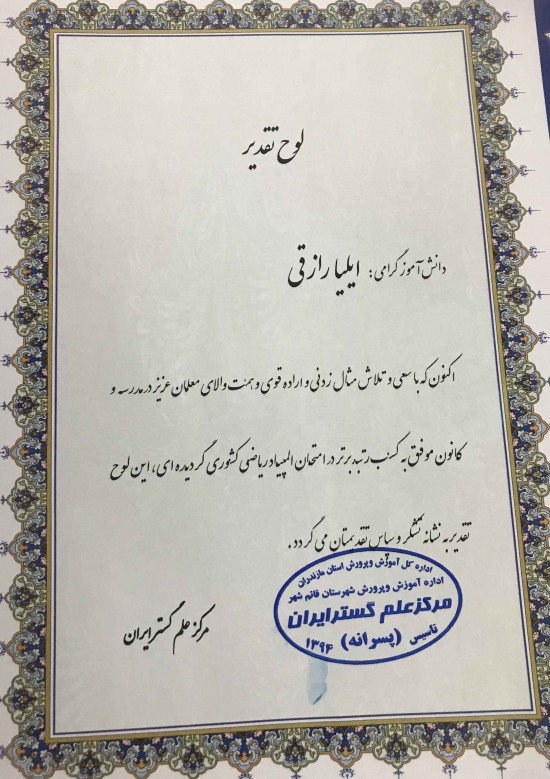 لوح تقدیر
دانش آموز گرامی: ایلیا رازقی
اکنون که با سعی و تلاش مثال زدنی و اراده قوی و همت والای معلمان عزیز در مدرسه و
کانون موفق به کسب رتبه برتر در امتحان المپیاد ریاضی کشوری گردیده ای، این لوح
تقدیر به نشانه تشکر و سپاس تقدیمتان می گردد.
اداره کل آموزش و پرورش استان مازندران
اداره آموزش و پرورش شهرستان قائم شهر
مرکز علم گستر ایران
تاسیس (پسرانه) ۱۳۹۴
مرکز علم گستر ایران